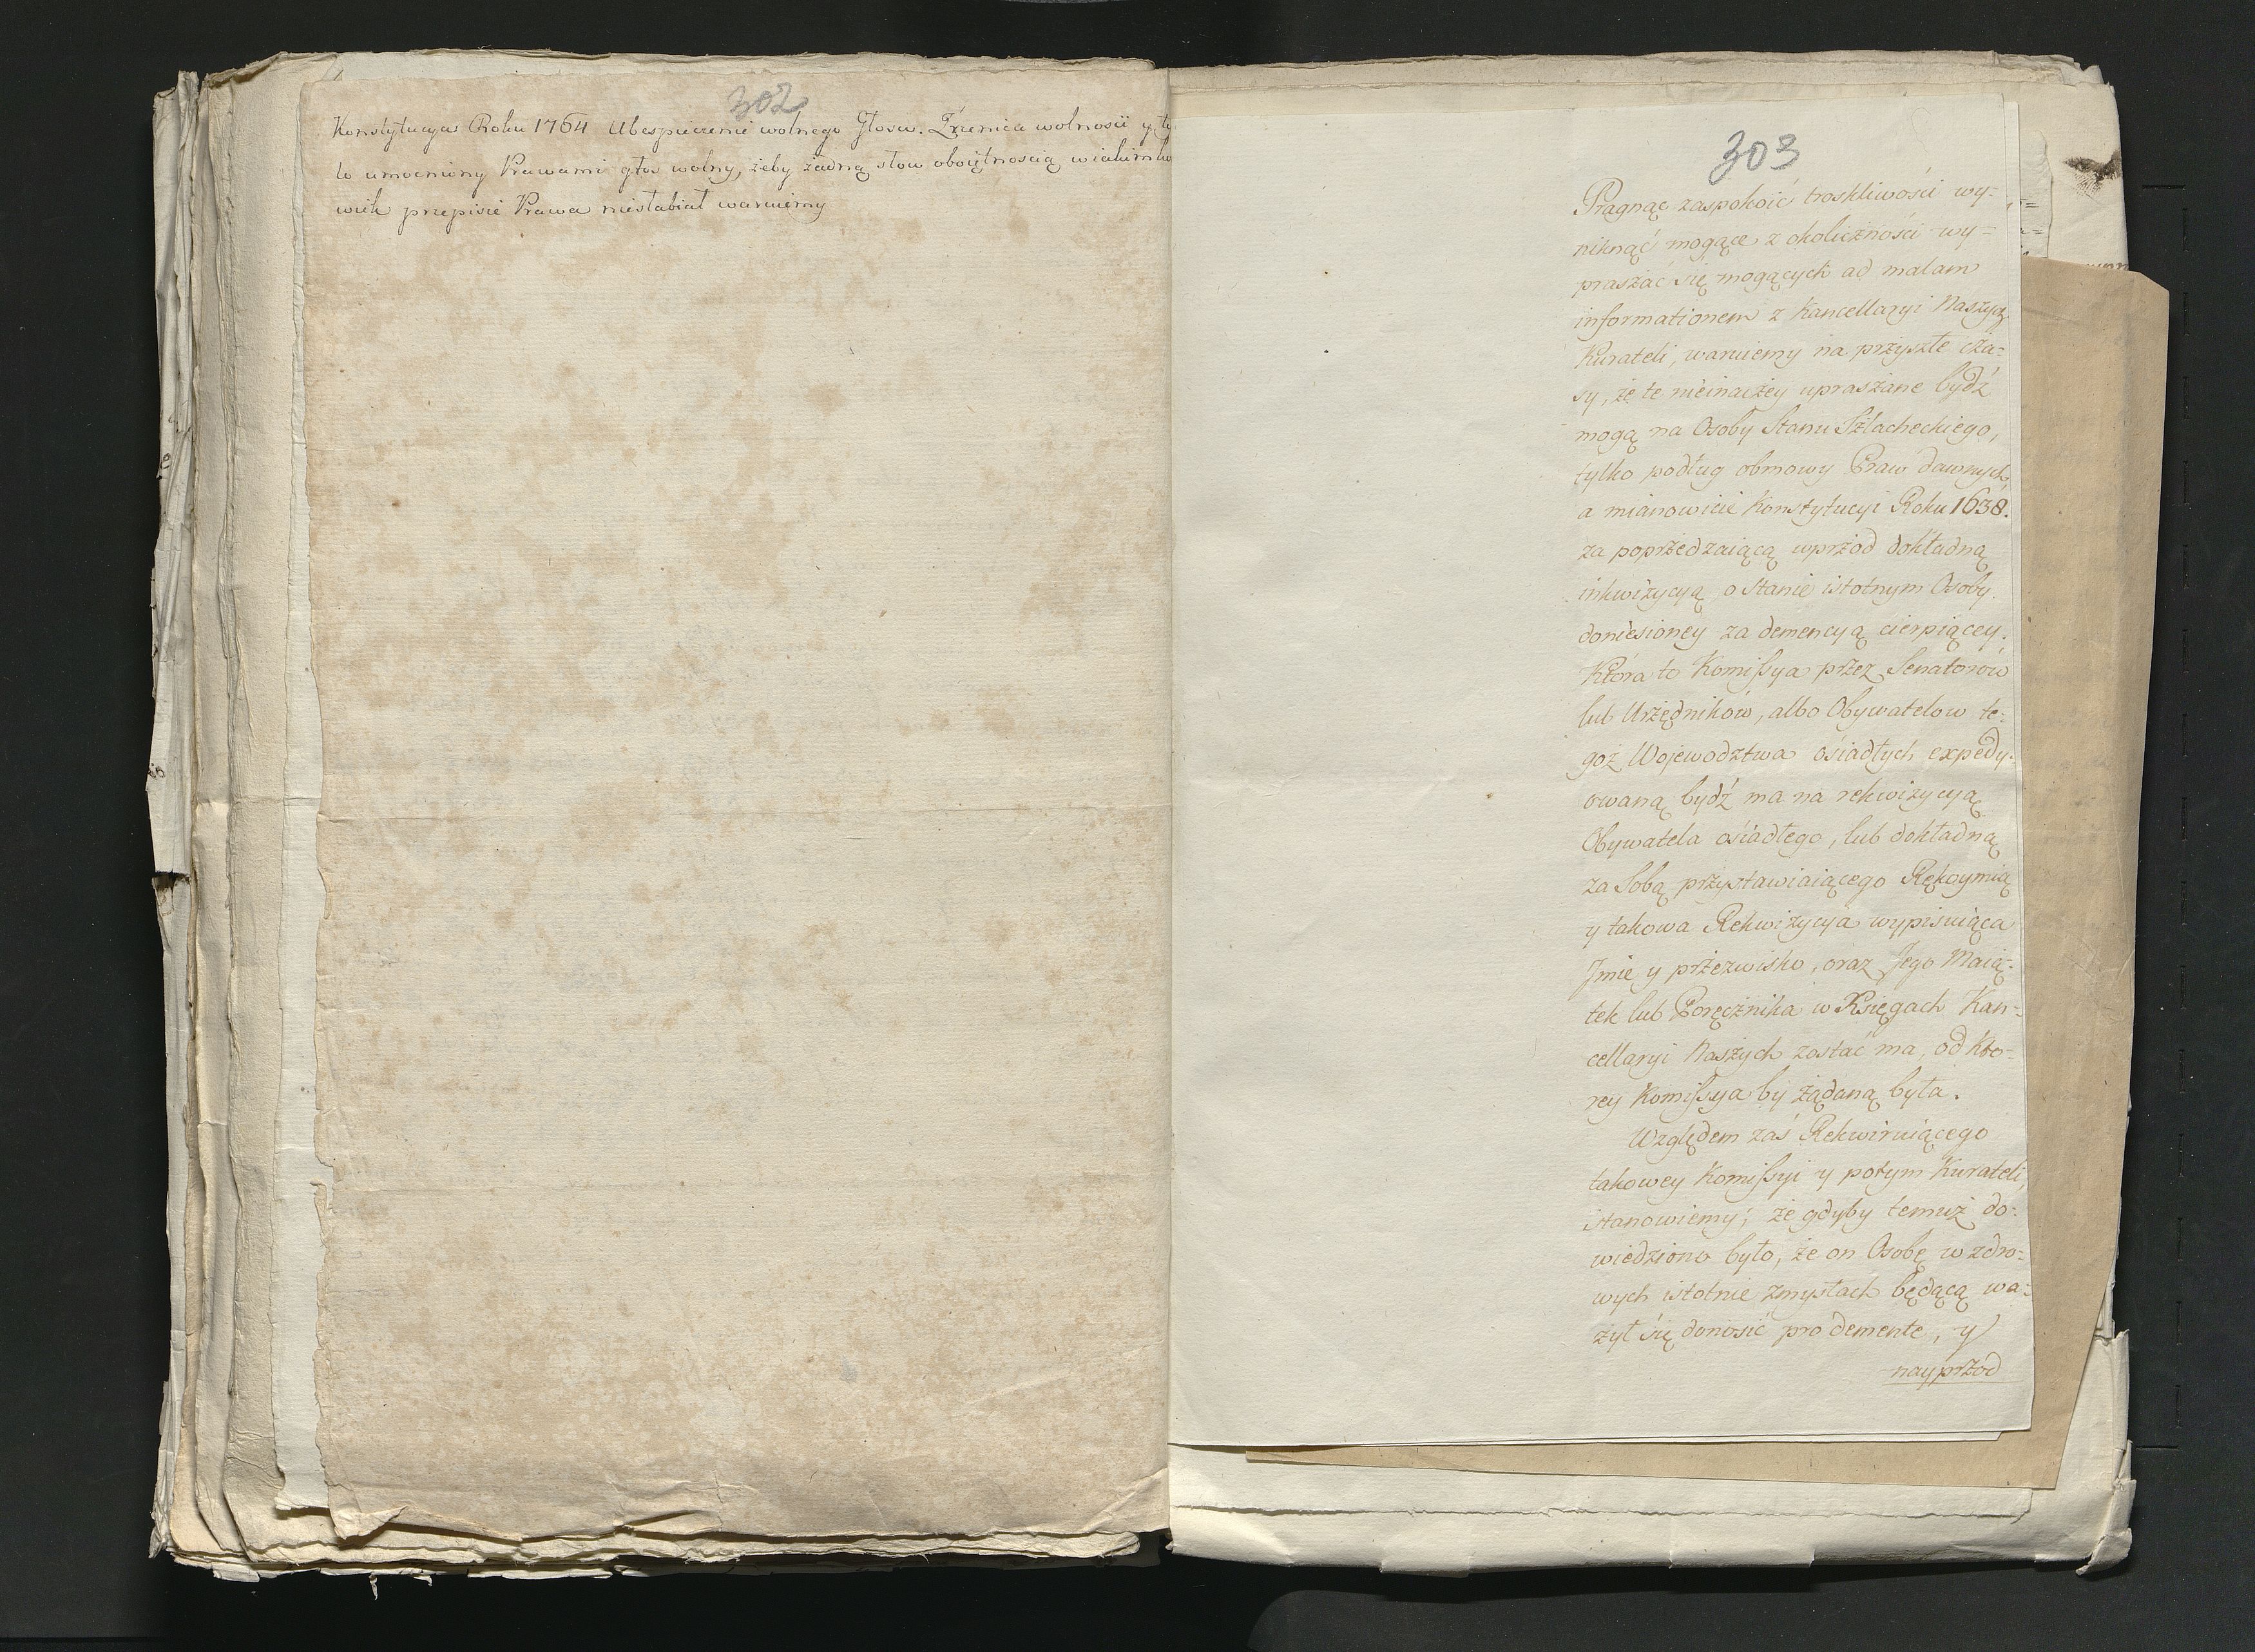 302
Konstytucya Roku 1764 Ubespieczenie wolnego Głosu. Źrenica wolności y ty
lo umocniony Prawami głos wolny, żeby żadną słow oboiętnoscią w iakimko
wiek przepisie Prawa niesłabiał waruiemy
303
Pragnąc zaspokoić troskliwości wy-
niknąć mogące z okoliczności wy-
praszać się mogących ad malam
informationem z Kancellaryi Naszych
Kurateli, waruiemy na przyszłe cza-
sy, że te nieinaczey upraszane bydź
mogą na Osoby Stanu Szlacheckiego,
tylko podług obmowy Praw dawnych
a mianowicie Konstytucyi Roku 1638.
za poprzedzaiącą wprzod dokładną
inkwizycyą o Stanie istotnym Osoby
doniesioney za demencyą cierpiącey.
Która to Komissya przez Senatorow
lub Urzędników, albo Obywatelow te-
goż Wojewodztwa osiadłych expedy-
owaną bydź ma na rekwizycyą
Obywatela osiadłego, lub dokładną
za Sobą przystawiaiącego Rękoymią
y takowa Rekwizycya wypisuiąca
Jmie y przezwisko, oraz Jego Maią-
tek lub Poręcznika w Księgach Kan-
cellaryi Naszych zostać ma, od kto-
rey Komissya by żądaną była.
Względem zaś Rekwiruiącego
takowey Komissyi y potym Kurateli,
stanowiemy; że gdyby temuż do-
wiedziono było, że on Osobę w zdro-
wych istotnie zmysłach będącą wa-
żył się donosić pro demente, y
nayprzod